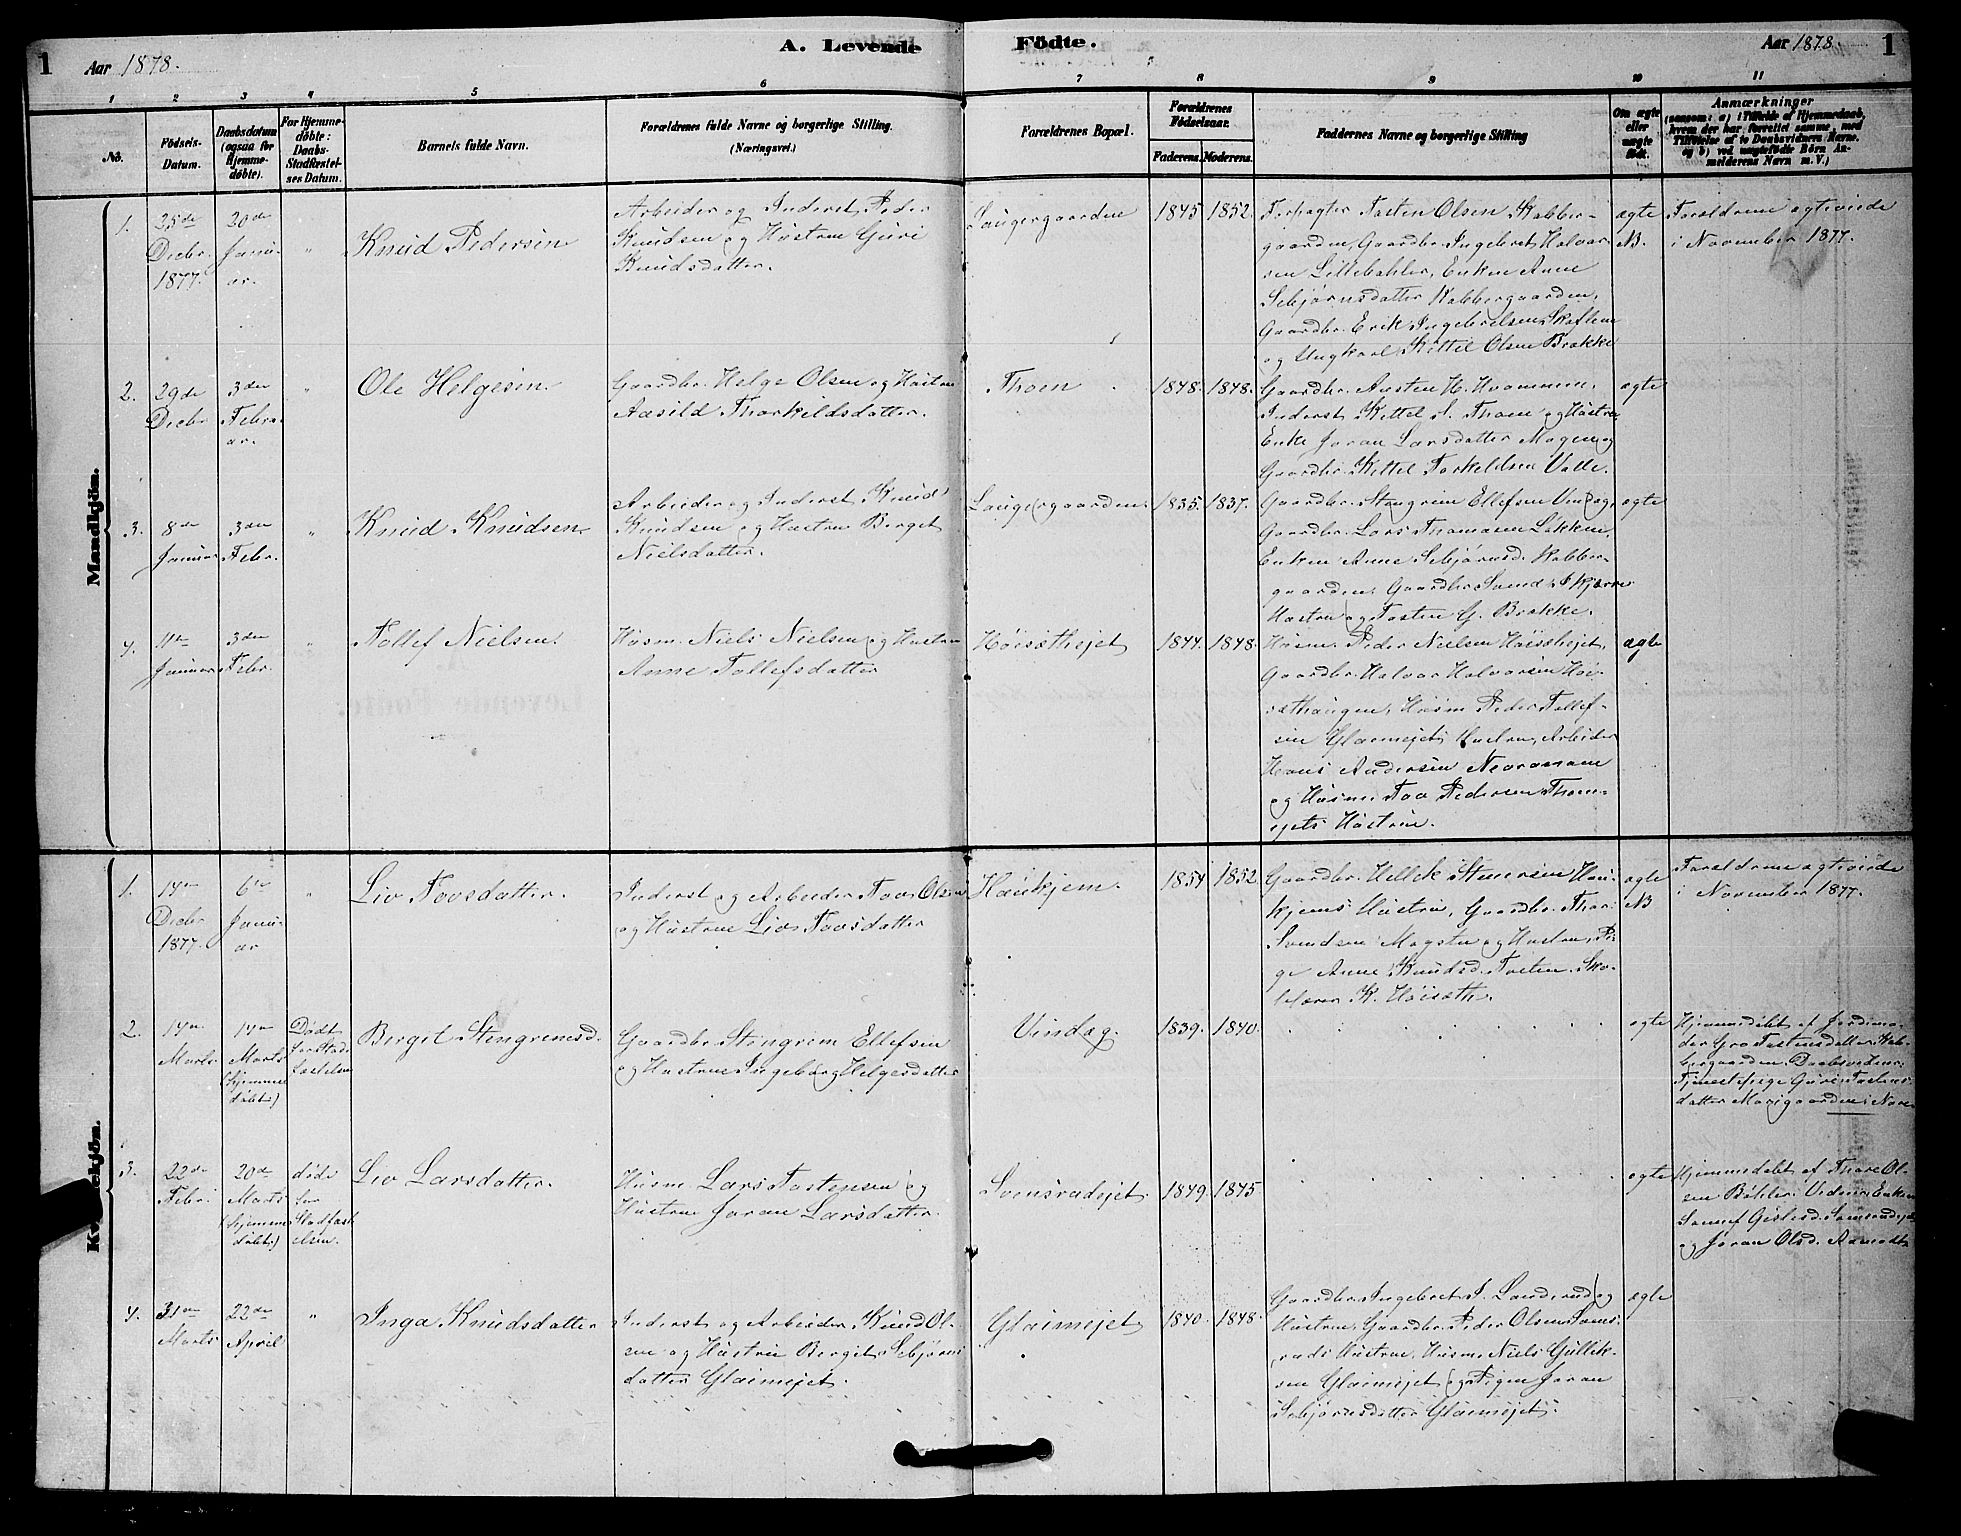 1 Aar 1878. A. Levende Födte. Aar 1878. 1
1 2 3 4 5 6 7 8 9 10 11
No.
Födsels-
Datum.
Daabsdatum
(ogsaa for
Hjemme-
döbte).
For Hjemme-
döbte:
Daabs-
Stadfæstel-
ses Datum.
Barnets fulde Navn.
Forældrenes fulde Navne og borgerlige Stilling.
(Næringsvei.)
Forældrenes Bopæl.
Forældrenes
Födselsaar.
Faderens. Moderens.
Faddernes Navne og borgerlige Stilling
Om ægte
eller
uægte
født.
Anmærkninger
(saasom: a) i Tilfælde af Hjemmedaab,
hvem der har forrettet samme, med
Tilföielse af to Daabsvidners Navne.
og b) ved uægtefödte Börn An-
melderens Navn m. V.)
Mandkjön.
1.
25de
Decbr.
1877.
20de
Janu-
ar.
"
Knud Pedersen
Arbeider og Inderst Peder
Knudsen og Hustru Guri
Knudsdatter.
Laugergaarden
1845 1852.
Forpagter Tosten Olsen Kabber-
gaarden, Gaardbr. Ingebret Halvor-
sen Lillebøhler, Enken Anne
Sebjørnsdatter Kabbergaarden,
Gaardbr. Erik Ingebretsen Skaflem
og Ungkarl Kittil Olsen Brække
ægte
NB.
Forældrene ægteviede
i November 1877.
2.
29de
Decbr.
3die
Febru-
ar.
"
Ole Helgesen.
Gaardbr. Helge Olsen og Hustru
Aasild Thorkildsdatter.
Thoen
1848. 1848.
Gaardbr. Austen H. Hvammen,
Inderst Kittel A. Thoen og Hustru,
Enke Joran Larsdatter Mogen og
Gaardbr. Kittel Torkeldsen Valle.
ægte
3.
8de
Januar
3die
Febr.
"
Knud Knudsen
Arbeider og Inderst Knud
Knudsen og Hustru Berget
Nielsdatter.
Laugergaarden.
1835. 1837.
Gaardbr. Stengrim Ellefsen Vindag,
Gaardbr. Lars ThomasenLøkken,
Enken Anne Sebjørnsd. Kabber-
gaarden, Gaardbr. Svend Skjerve
Hustru og Tosten G. Brække.
ægte
4.
11te
Januar
3die
Febr.
"
Tollef Nielsen.
Husm. Niels Nielsen og Hustru
Anne Tollefsdatter
Høisæthejet
1844. 1848.
Husm. Peder Nielsen Høisæthejet,
Gaardbr. Halvor Halvorsen Høi-
sæthaugen, Husm. Peder Tollef-
sen Glaimejets Hustru, Arbeider
Hans Andersen Nevramoen
og Husm. Tov Pedersen Thom-
ejets Hustru.
ægte
Kvindekjön.
1.
14de
Decbr
1877.
6te
Janu-
ar
"
Liv Tovsdatter.
Inderst og Arbeider Tov Olsen
og Hustru Liv Tovsdatter
Haukjem.
1854 1852
Gaardbr. Hellek Stenersen Hau-
kjems Hustru, Gaardbr. Thor
Svendsen Mogstu og Hustru, Pi-
ge Anne Knudsd. Tveten. Sko-
lelærer K. Høisæth.
ægte
NB
Forældrene ægteviede
i November 1877.
2.
14de
Marts
14de
Marts
(hjemme
døbt.)
Dødt
før Stad-
fæstelsen
Bergit Stengrimsd.
Gaardbr. Stengrim Ellefsen
og Hustru Ingeborg Helgesdatter
Vindag
1839. 1840.
ægte
Hjemmedøbt af Jordmo-
der Gro Tostensdatter Kab-
bergaarden. Daabsvidner:
Tjenestepige Guri Tostens-
datter Morigaarden i Nore.
3.
22de
Febr.
20de
Marts
(hjemme
døbt.)
døde
før
Stadfæst
elsen.
Liv Larsdatter.
Husm. Lars Tostensen og
Hustru Joran Larsdatter.
Svensrudejet.
1849. 1845
ægte
Hjemmedøbt af Thore Ol-
sen Bøhler. Vidner: Enken
Gislesd. Svensrudejet
og Joran Olsd.
4.
31te
Marts
22de
April
"
Inga Knudsdatter
Inderst og Arbeider Knud Ol-
sen og Hustru Bergit Sebjørns
datter Glaimejet.
Glaimejet
1840. 1848.
Gaardbr. Ingebret J. Landerud og
Hustru, Gaardbr. Peder Olsen Svens-
ruds Hustru, Husm. Niels Gullik-
sen Glaimejet og Pigen Joran
Sebjørnsdatter Glaimejet.
ægte